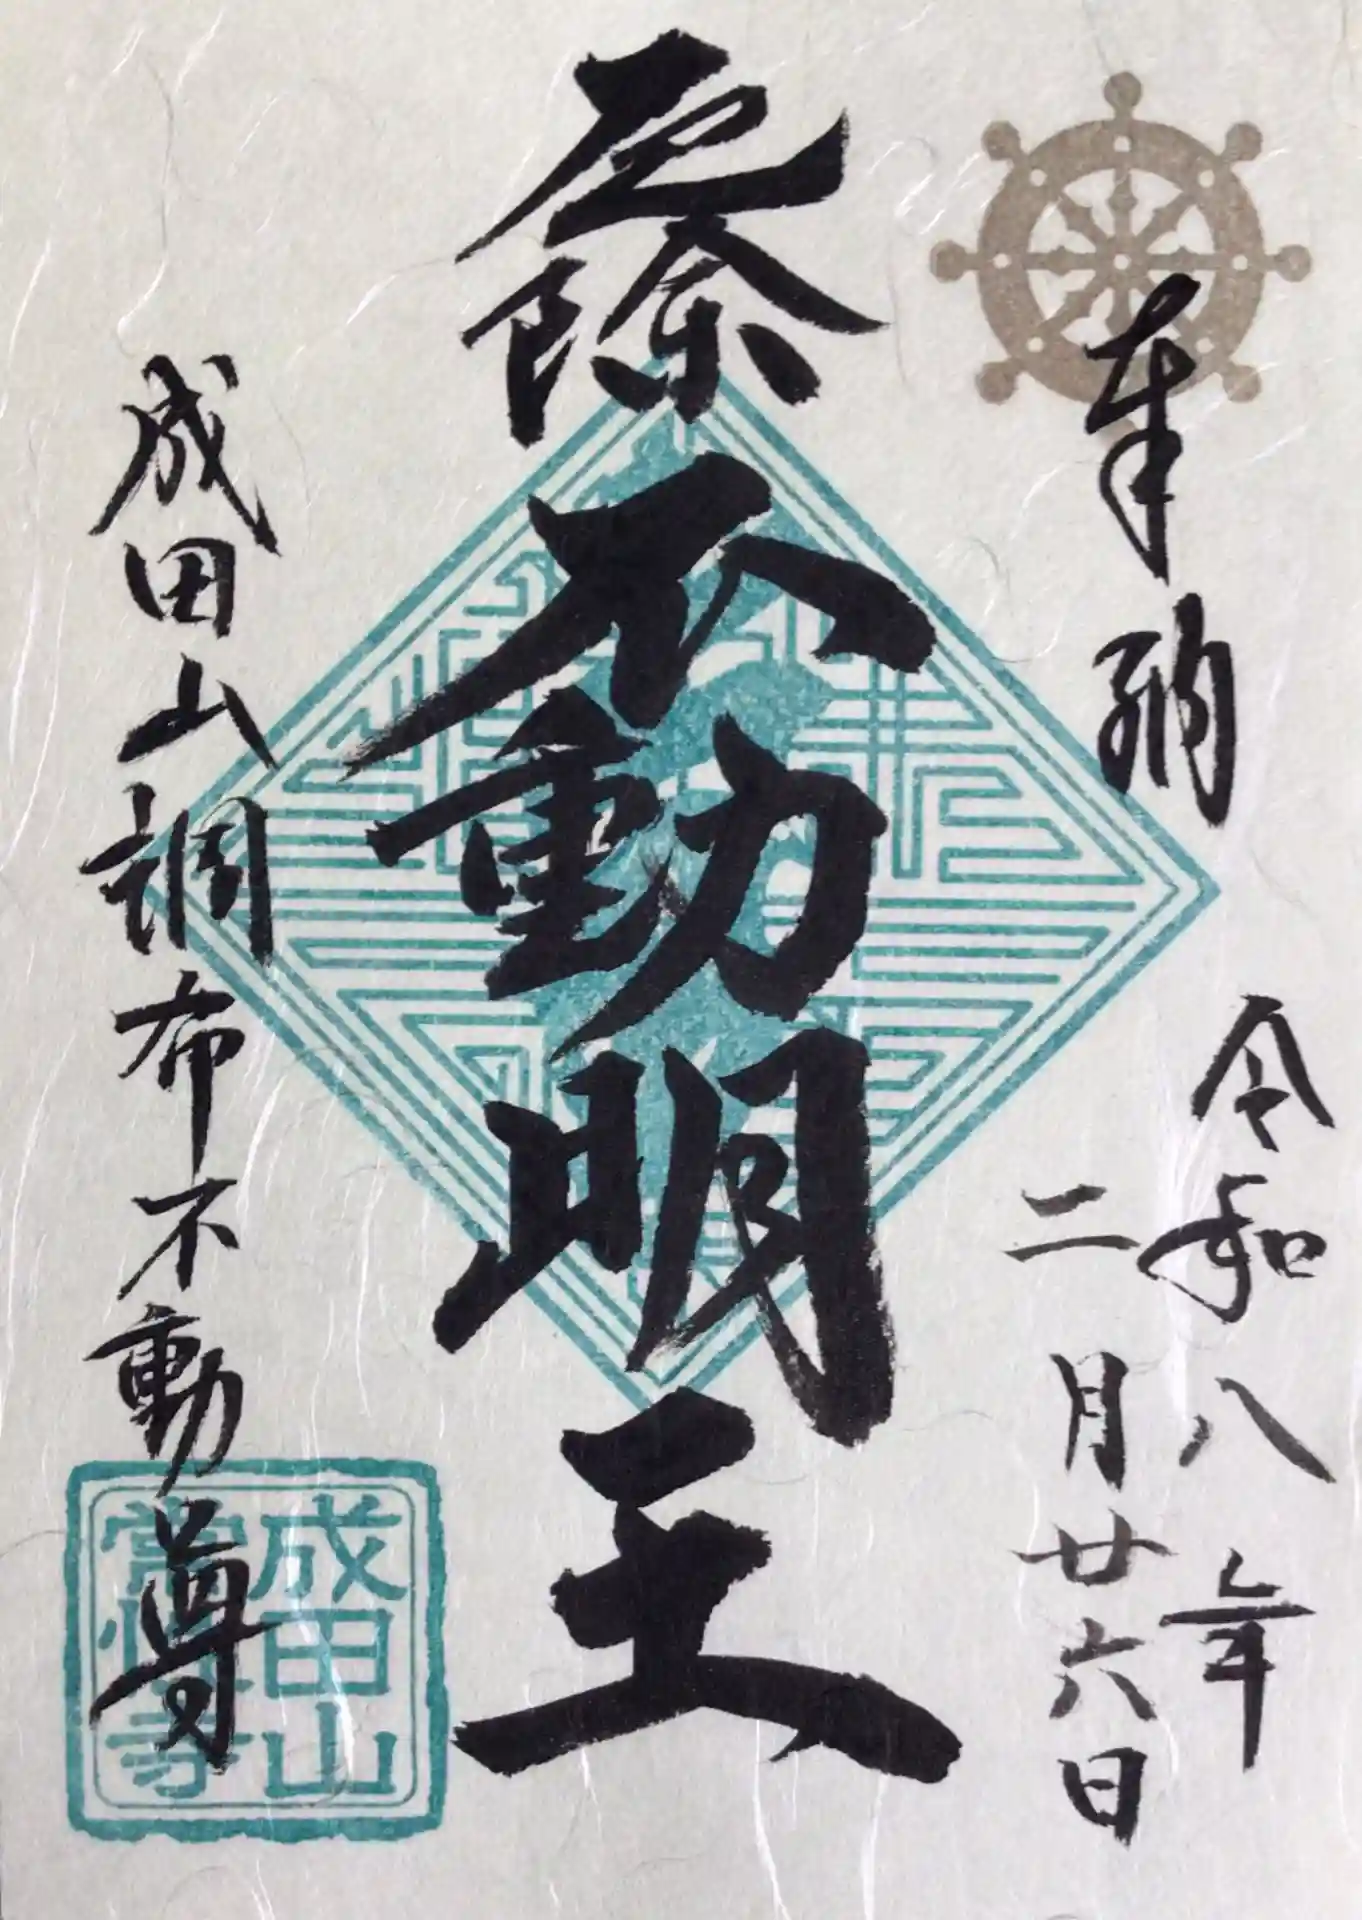 奉納
令和八年
二月廿六日
厄除
不動明王
成田山調布不動尊
成田山
常性寺